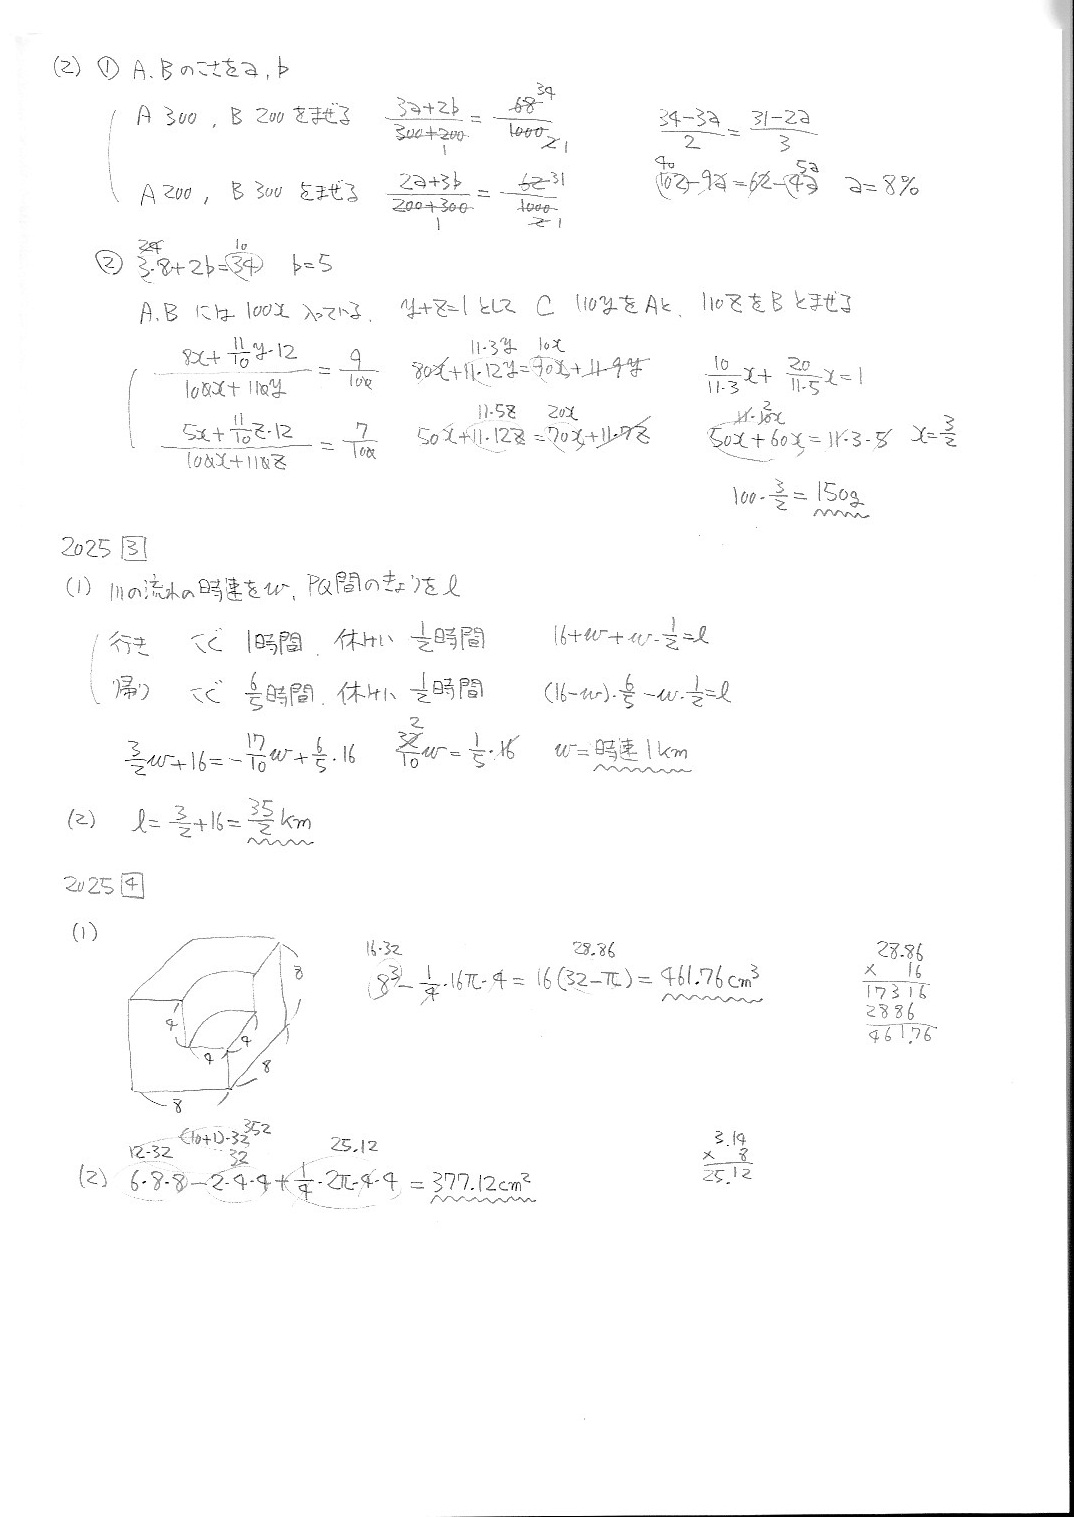 (2) ① A.Bのこさをa, b
A 300 , B 200 をまぜる (3a+2b)/(300+200) = 68/1000 34 1 2 1 (34-3a)/2 = (31-2a)/3
A 200 , B 300 をまぜる (2a+3b)/(200+300) = 62/1000 31 1 2 1 102-9a=62-4a 40 5a a=8%
② 3·8+2b=34 24 10 b=5
A.B には 100x 入っている. y+z=1として C 110yをAと, 110zをBとまぜる
(8x+11/10 y·12)/(100x+110y) = 9/100 80x+11·12y=90x+11·9y 11·3y 10x 10/(11·3) x + 20/(11·5) x=1
(5x+11/10 z·12)/(100x+110z) = 7/100 50x+11·12z=70x+11·7z 11·5z 20x 50x+60x=11·3·5 x=3/2
100·3/2=150g
2025 3
(1) 川の流れの時速をw, PQ間のきょりをl
行き こぐ 1時間, 休けい 1/2時間 16+w+w·1/2=l
帰り こぐ 6/5時間, 休けい 1/2時間 (16-w)·6/5-w·1/2=l
3/2w+16=-17/10w+6/5·16 32/10w=1/5·16 2 w=時速1km
(2) l=3/2+16=35/2km
2025 4
(1) 8 4 4 4 8 8
16·32 28.86
8³-1/4·16π·4=16(32-π)=461.76cm³
28.86
× 16
17316
2886
461.76
12·32 (10+1)·32 352 32 25.12
(2) 6·8·8-2·4·4+1/4·2π·4·4=377.12cm²
3.14
× 8
25.12